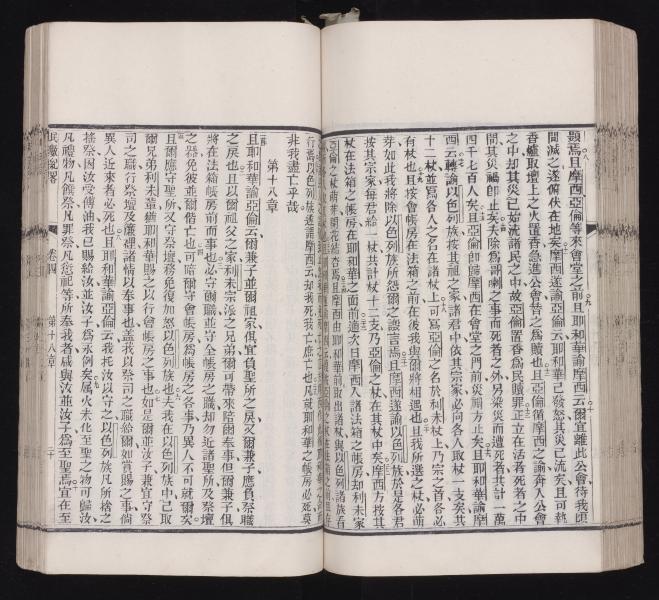 顯焉且摩西亞倫等來會堂之前且耶和華諭摩西云爾宜離此公會待我頃
間滅之遂俯伏在地矣摩西遂諭亞倫云耶和華已發怒其災已流矣且可執
香爐取壇上之火置香急進公會當之爲贖也且亞倫循摩西之諭奔入公會
之中却其災已始流諸民之中故亞倫置香爲民贖罪正立在活者死者之中
間其災禍卽止矣夫除爲哥喇之事而死者之外另染災而遭死者共計一萬
四千七百人矣且亞倫卽歸摩西在會堂之門前災禍方止矣且耶和華諭摩
西云轉諭以色列族按其祖之家諸君中依其宗家必向各人取杖一支矣共
十二杖並寫各人之名在諸杖上可寫亞倫之名於利未杖上乃宗之首各必
有杖也且按會帳房在法箱之前在後我與爾將相遇也且我所選之杖必萌
芽如此我將除以色列族所怨爾之謗言焉且摩西遂諭以色列族於是各君
按其宗家每君給一杖共計杖十二支乃亞倫之杖在其杖中矣摩西方按其
杖在法箱之帳房在耶和華之面前迨次日摩西入諸法箱之帳房却利未家
亞倫之杖萌芽開花結杏焉且摩西由耶和華前取出諸杖與以色列諸族看
行焉以色列族遂謂摩西云却我死我亡庶亡也凡就耶和華之帳房必死莫
非我盡亡乎哉
第十八章
且耶和華諭亞倫云爾兼子並爾祖家俱宜負聖所之戾又爾兼子應負祭職
之戾也且以爾祖父之家利未宗派之兄弟爾可帶來陪爾奉事但爾兼子俱
將在法箱帳房前而事也必守爾職並守全帳房之職却勿近諸聖所及祭壇
之器免彼並爾偕亡也可陪爾守會帳房爲帳房之各事乃異人不可就爾矣
且爾應守聖所又守祭壇務免復加怒以色列族也夫我在以色列族中已取
爾兄弟利未輩猶耶和華賜之以行會帳房之事也如是爾並爾子兼宜守祭
司之職行祭壇及簾裡諸情以奉事也蓋我以祭司之職給爾如賞賜之事倘
異人近來者必死也且耶和華諭亞倫云我托汝以守之以色列族凡所捨之
搖祭因汝受傅油我已賜給汝並汝子爲永例矣屬火未化至聖之物可歸汝
凡禮物凡饌祭凡罪祭凡愆祀等所奉我者咸與汝並汝子爲至聖焉宜在至
民數紀畧 卷四 第十八章 二十